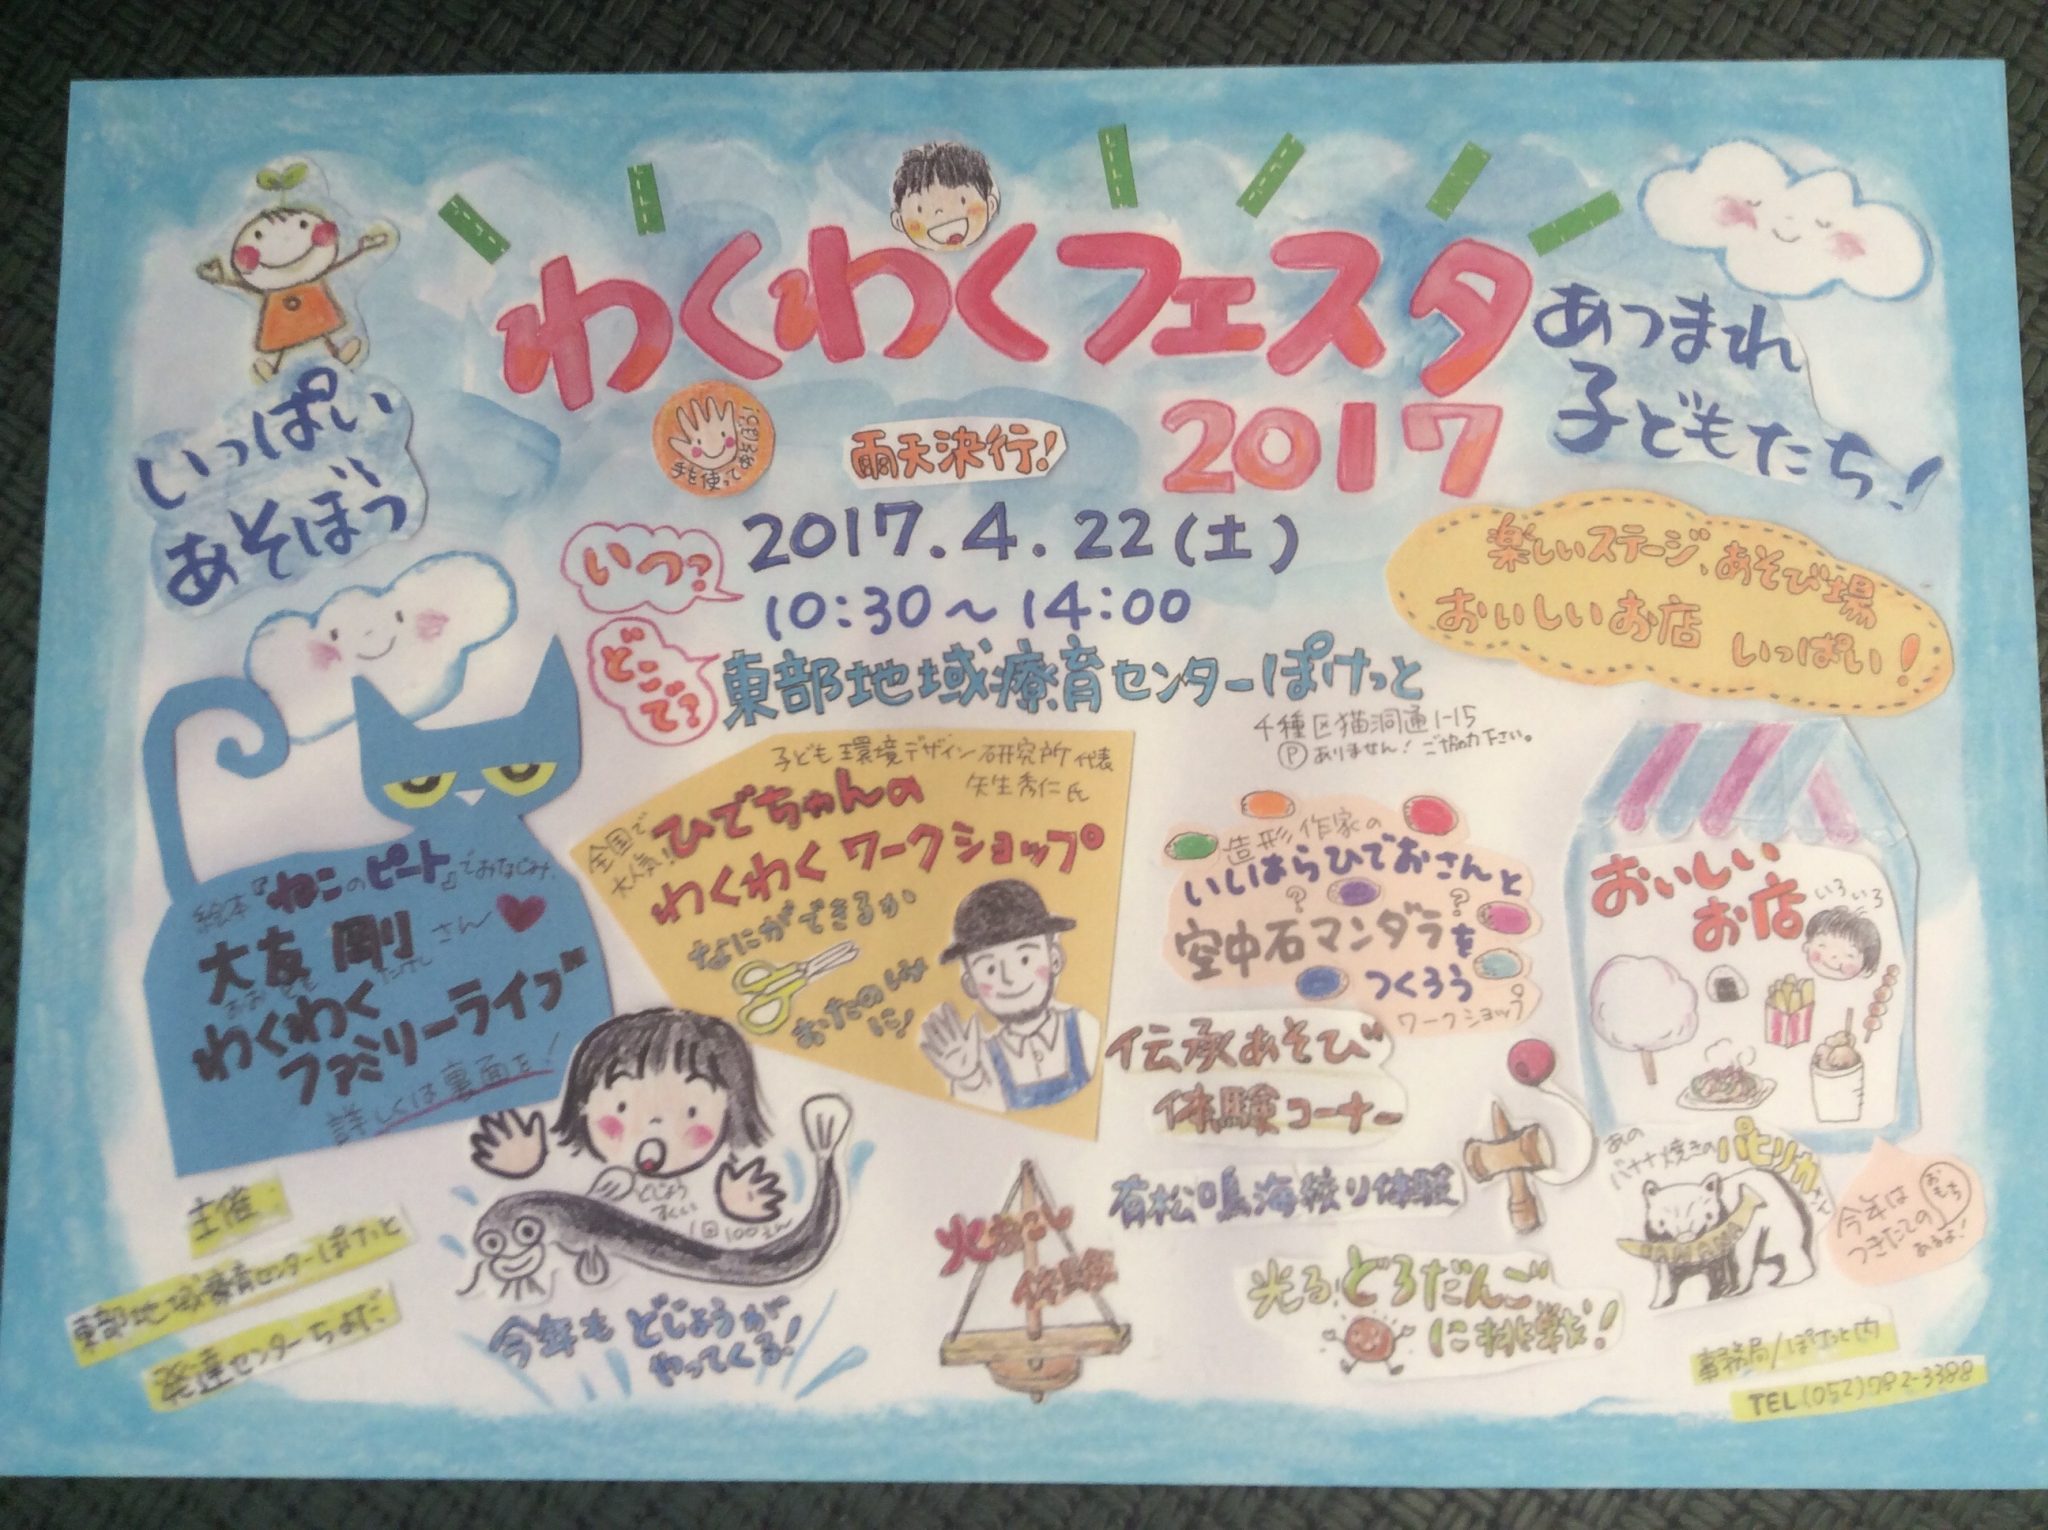 わくわくフェスタ
2017
あつまれ
子どもたち!
いっぱい
あそぼう
手を使ってあそぼう!
雨天決行!
いつ?
2017.4.22(土)
10:30~14:00
どこで?
東部地域療育センターぽけっと
千種区猫洞通1-15
Ⓟありません!ご協力下さい。
楽しいステージ、あそび場
おいしいお店 いっぱい!
絵本『ねこのピート』でおなじみ、
大友 剛 さん
おおとも たけし
わくわく
ファミリーライブ
詳しくは裏面を!
子ども環境デザイン研究所代表
矢生秀仁氏
全国で
大人気!
ひでちゃんの
わくわくワークショップ
なにができるか
おたのしみ
に!
造形作家の
いしはらひでおさんと
空中石マンダラを
つくろう
ワークショップ
おいしい
お店
いろいろ
伝承あそび
体験コーナー
有松鳴海絞り体験
光る!どろだんご
に挑戦!
火おこし
体験
どじょう
すくい
1回100えん
今年もどじょうが
やってくる!
あの
バナナ焼きのパピリカさん
BANANA
今年は
つきたての
おもち
あるよ!
主催
東部地域療育センターぽけっと
発達センターちよだ
事務局/ぽけっと内
TEL(052)782-3388